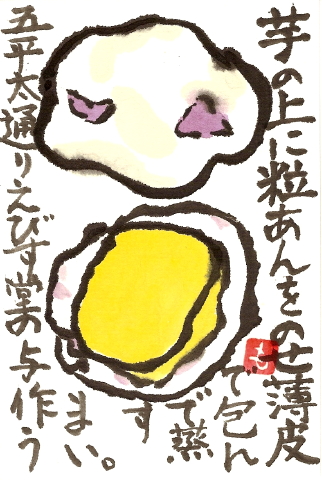 芋の上に粒あんをのせ薄皮
で包ん
で蒸
す
うまい。
五平太通りえびす堂の与作